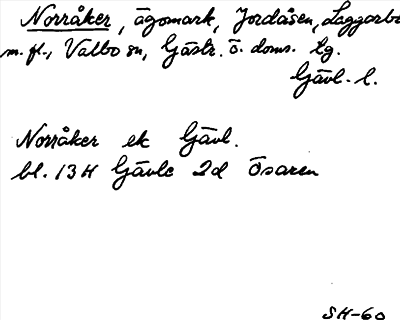 Norråker, ägomark, Jordåsen, Laggarbo
m. fl., Valbo sn, Gästr. ö. doms. lg.
Gävl. l.
Norråker ek Gävl.
bl. 13H Gävle 2d Ösaren
SH-60